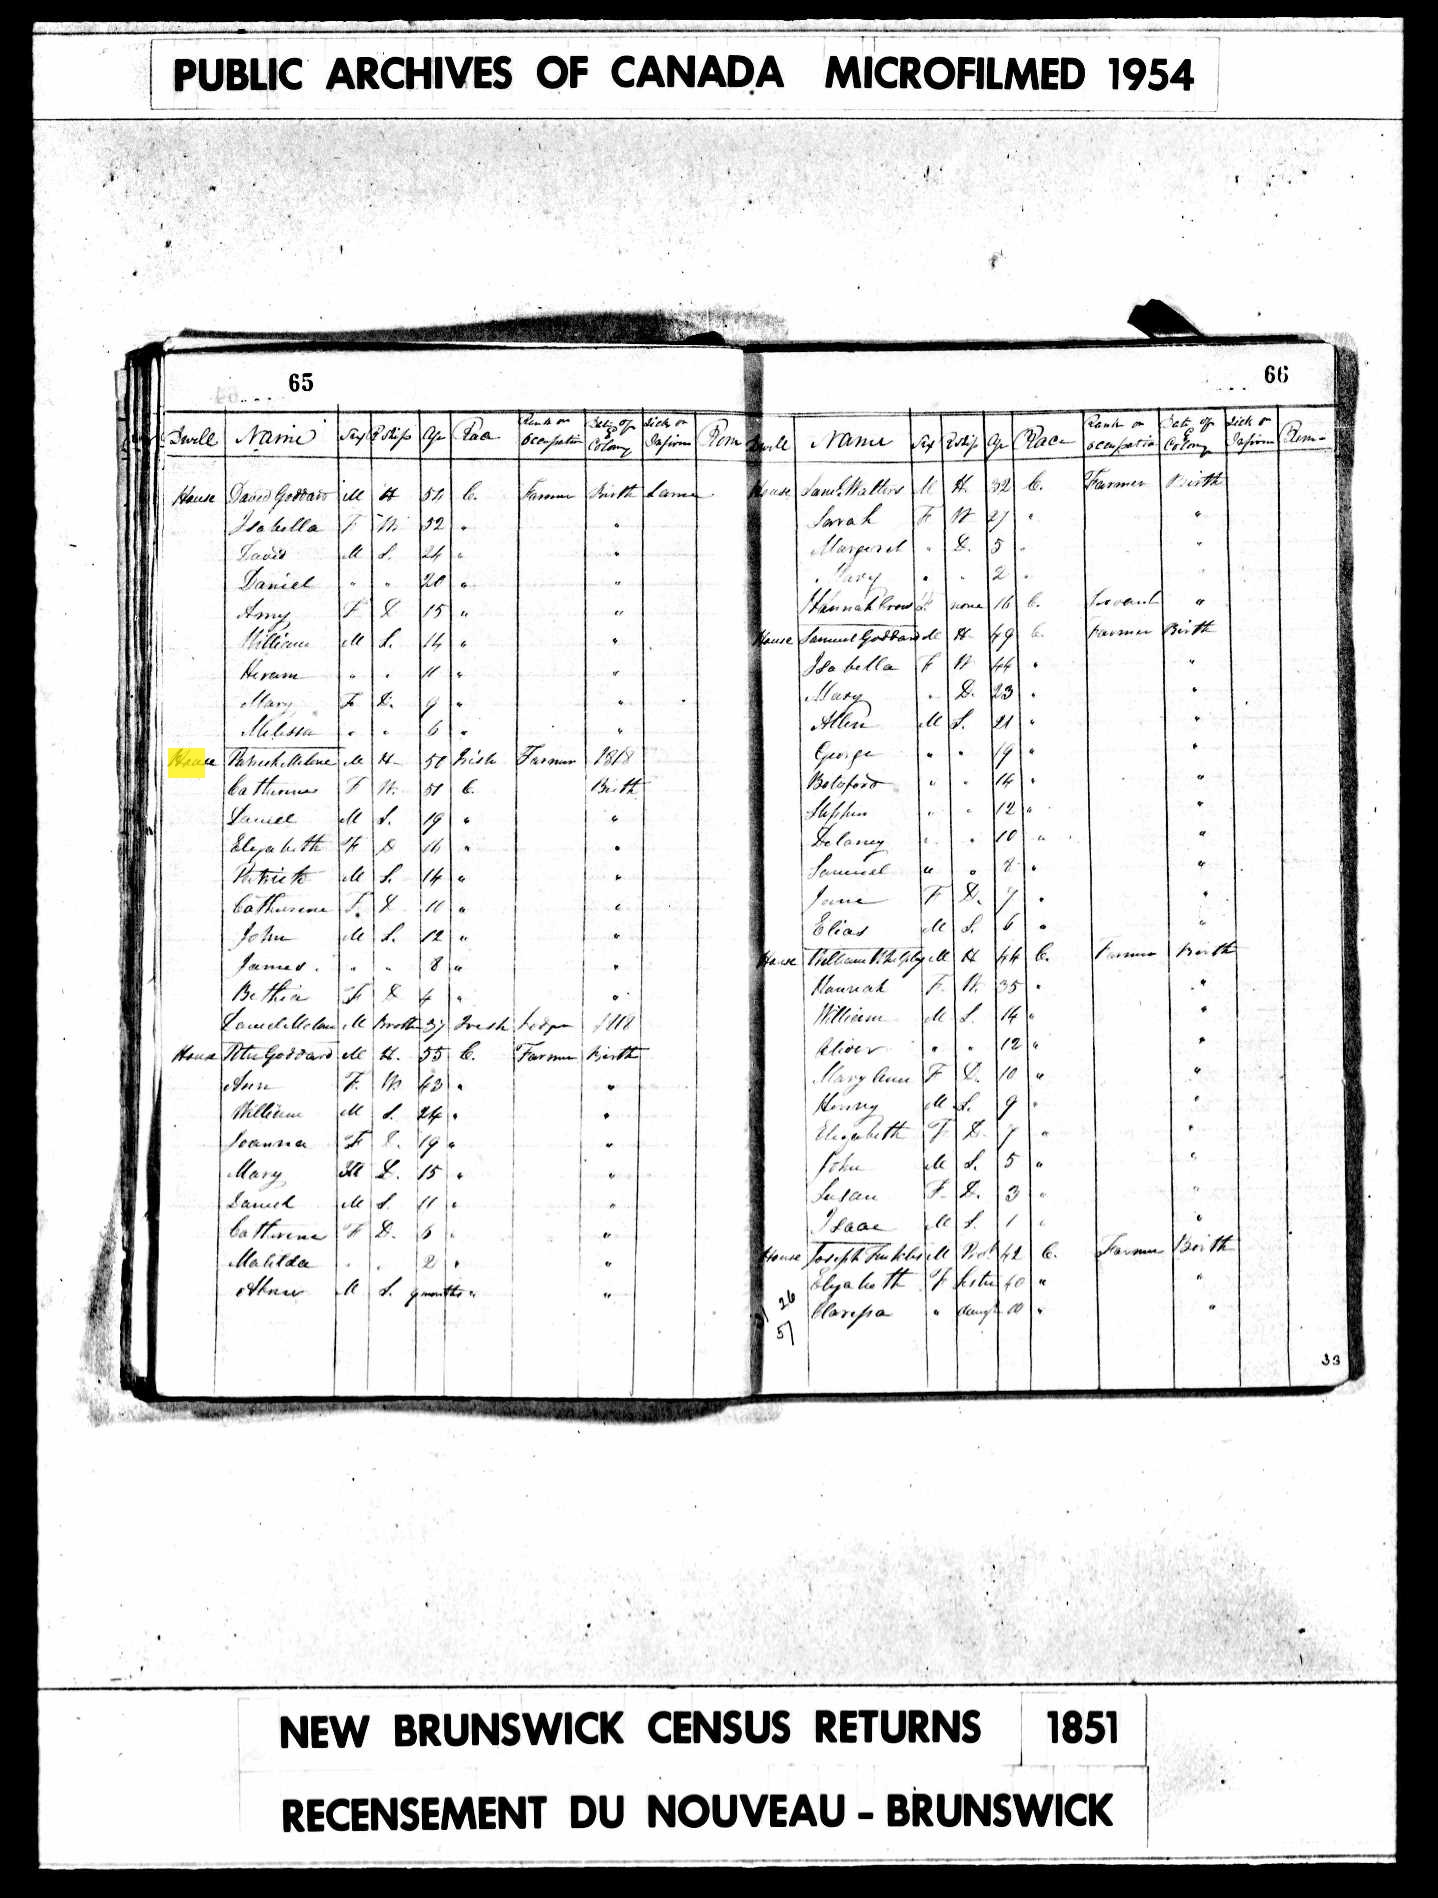 PUBLIC ARCHIVES OF CANADA MICROFILMED 1954
65
Dwell Name Sex R'ship Age Race Rank or Occupation Date of Colony Sick or Infirm Rem
House David Goddard M H C. Farmer Birth Lame
Isabella F W. 52 "
David M S. 24 " "
Daniel " " 20 " "
Amy F D 15 " "
William M S. 14 " "
Hiram " " 11 " "
Mary F D. 9 " "
Melissa " " 6 " "
House Patrick Malone M H 50 Irish Farmer 1818
Catherine F W. 51 C. Birth
Daniel M S. 19 " "
Elizabeth F D 16 " "
Patrick M S. 14 " "
Catherine F. D 11 " "
John M S. 12 " "
James " " 8 " "
Bethia F D 4 " "
Daniel Malone M Brother 37 Irish Lodger
House Peter Goddard M H. 55 C. Farmer Birth
Ann F. W 43 " "
William M S. 24 "
Joanna F D. 19 " "
Mary D. 15 " "
Daniel M S. 11 " "
Catherine F D. 6 " "
Matilda " " 2 " "
Abner M S. 9 months " "
66
Dwell Name Sex R'ship Age Race Rank or occupation Date of Colony Sick or Infirm Rem-
House Saml. Watters M H. 32 C. Farmer Birth
Sarah F W 27 " "
Margaret " D. 5 " "
Mary " " 2 " "
Hannah F. none 16 C. Servant "
House Samuel Goddard M H 49 C. Farmer Birth
Isabella F W 44 " "
Mary " D. 23 " "
Allen M S. 21 " "
George " " 19 " "
Botsford " " 14 " "
Stephen " " 12 " "
Delaney " " 10 " "
Samuel " " "
Jane F D. 7 " "
Elias M S. 6 " "
House William Whelpley M H 44 C. Farmer Birth
Hannah F. W. 35 " "
William M S. 14 " "
Oliver " " 12 " "
Mary Ann F D. 10 " "
Henry M S. 9 " "
Elizabeth F D. 7 " "
John M S. 5 " "
Susan F. D. 3 " "
Isaac M S. 1 " "
House Joseph M 42 C. Farmer Birth
Elizabeth F Sister 40 " "
Claripa " daugh 10 " "
26
51
33
NEW BRUNSWICK CENSUS RETURNS 1851
RECENSEMENT DU NOUVEAU - BRUNSWICK